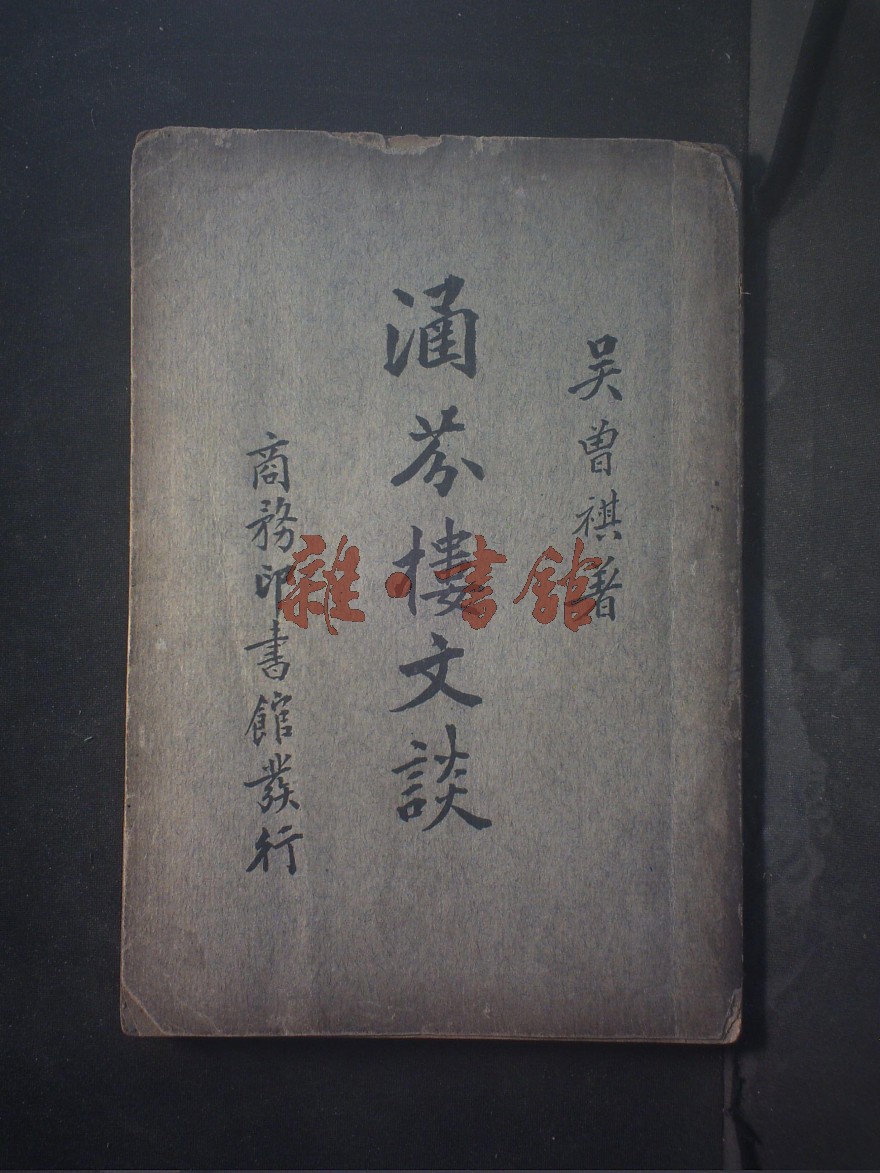 吴曾祺著
涵芬樓文談
商務印書館發行
雜·書館